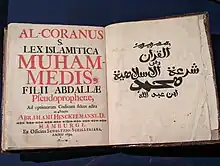 AL-CORANUS
S.
LEX ISLAMITICA
MUHAM-
MEDIS,
FILII ABDALLÆ
Pseudoprophetæ,
Ad optimorum Codicum fidem edita
ABRAHAMI HINCKELMANNI, D.
HAMBURGI,
Ex Officina SCHULTZIO-SCHILLERIANA,
القرآن
شرعة الاسلامية
محمد
ابن عبد الله